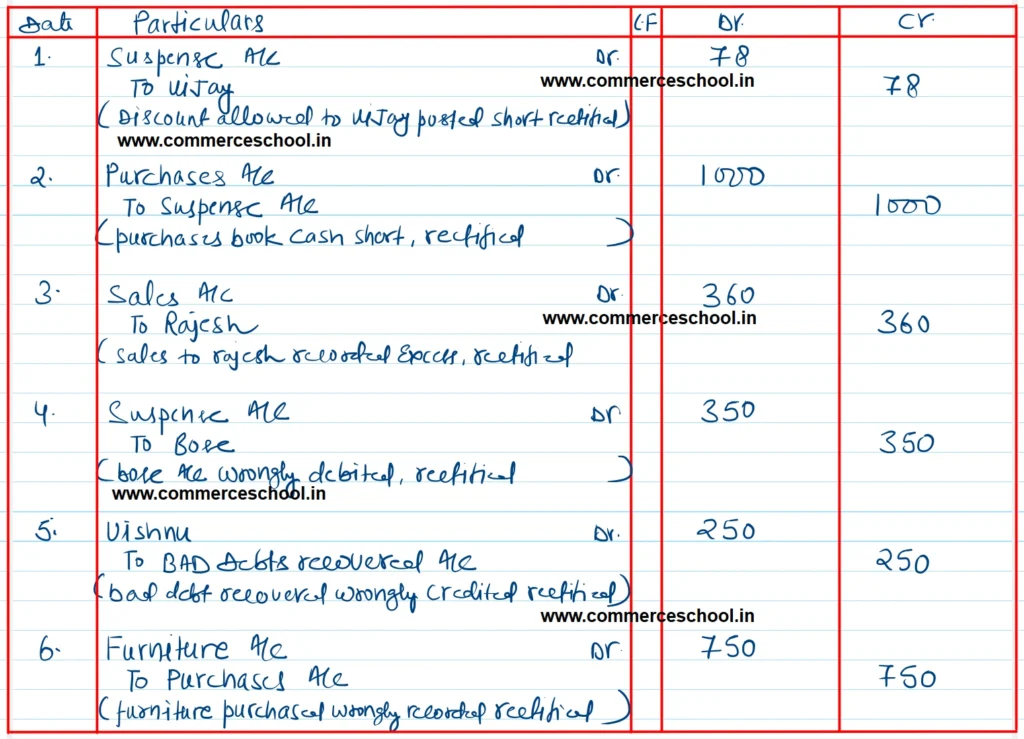 Date Particulars L.F Dr. Cr.
1. Suspense A/c Dr. 78
www.commerceschool.in
To Vijay 78
(Discount allowed to Vijay posted short rectified)
www.commerceschool.in
2. Purchases A/c Dr. 1000
To Suspense A/c 1000
(purchases book cash short, rectified)
3. Sales A/c Dr. 360
To Rajesh www.commerceschool.in 360
(Sales to rajesh recorded Excess, rectified
4. Suspense A/c Dr 350
To Bose 350
(bose A/c wrongly debited, rectified)
www.commerceschool.in
5. Vishnu Dr. 250
To BAD Debts recovered A/c 250
(bad debt recovered wrongly credited rectified)
www.commerceschool.in
6. Furniture A/c Dr. 750
To Purchases A/c 750
(furniture purchased wrongly recorded rectified)